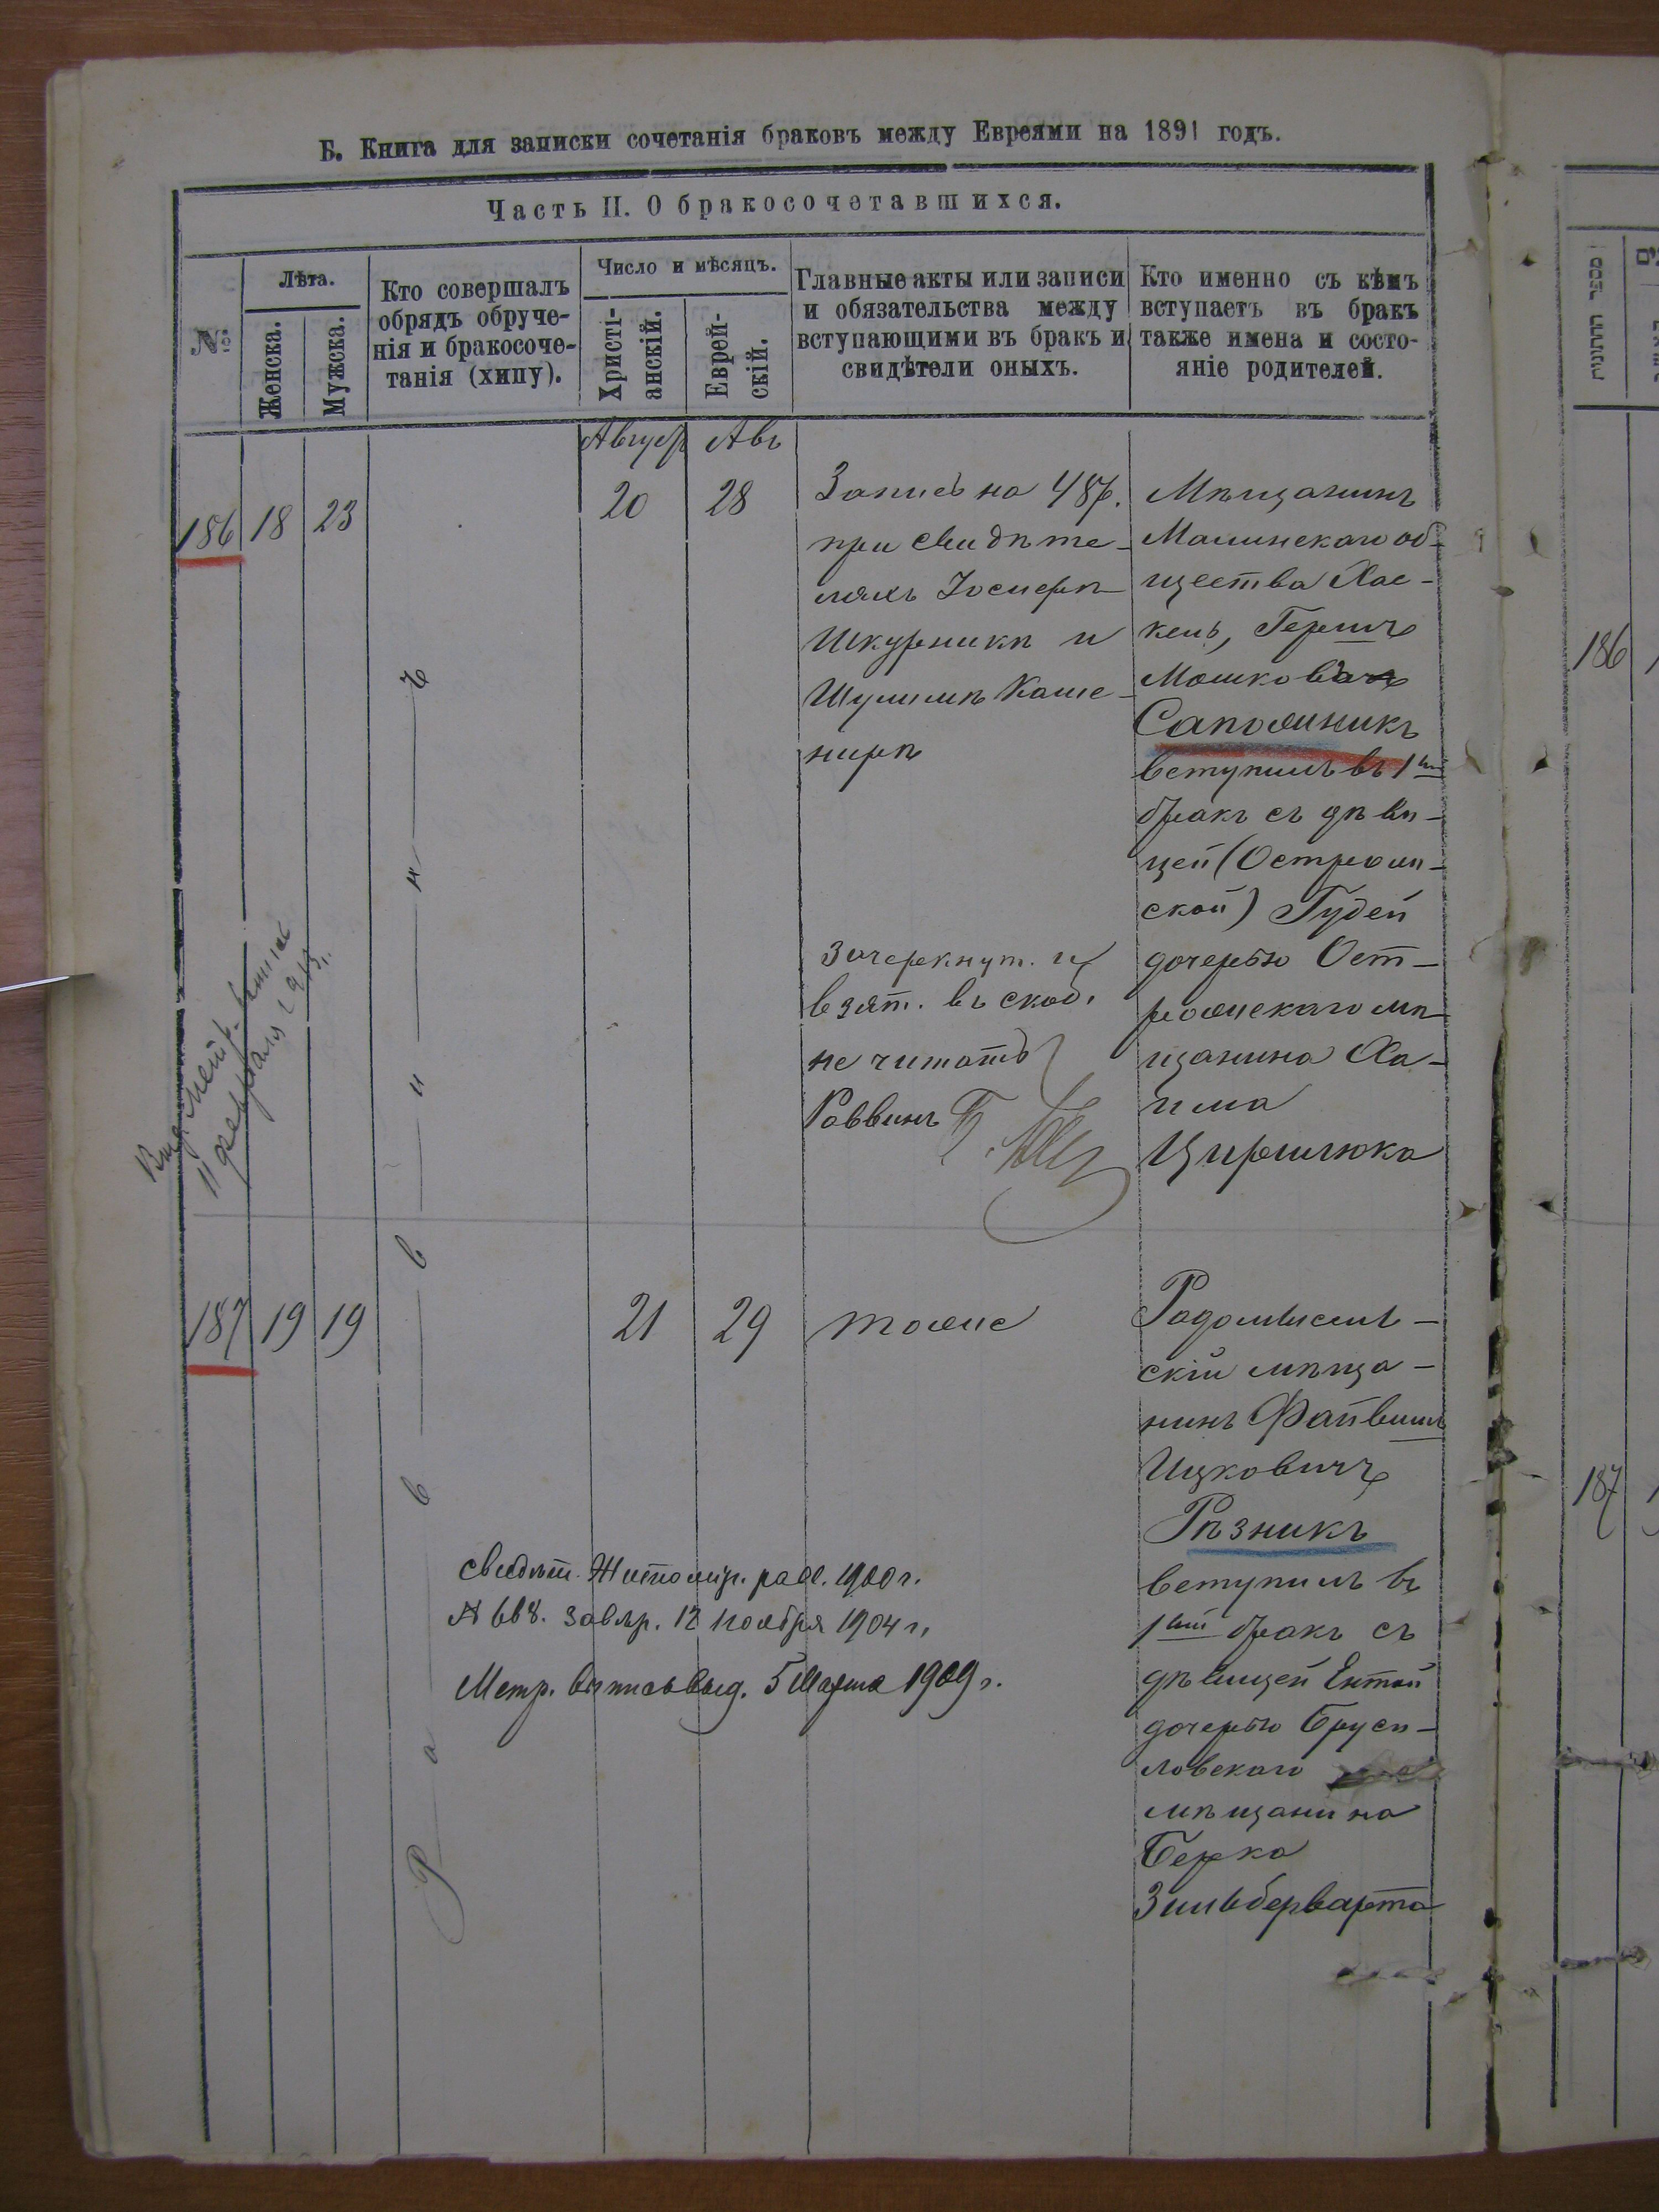 Б. Книга для записки сочетанія браковъ между Евреями на 1891 годъ.
Часть II. О бракосочетавшихся.
№
Лѣта.
Женска.
Мужска.
Кто совершалъ
обрядъ обруче-
нія и бракосоче-
танія (хипу).
Число и мѣсяцъ.
Христі-
анскій.
Еврей-
скій.
Главные акты или записи
и обязательства между
вступающими въ бракъ и
свидѣтели оныхъ.
Кто именно съ кѣмъ
вступаетъ въ бракъ
также имена и состо-
яніе родителей.
Август Авъ
186 18 23
20 28
Запись на 48 р.
при свидѣте-
ляхъ Іосифѣ
Шкурникѣ и
Шулимѣ Каше-
нирѣ
зачеркнут. и
взят. въ скоб.
не читать
Раввинъ
Мѣщанинъ
Малинскаго об-
щества Хас-
кель, Гершъ
Мошковичъ
Сапожникъ
вступилъ въ 1ый
бракъ съ дѣви-
цей (Острожн-
ской) Гудей
дочерью Ост-
рожскаго мѣ-
щанина Ха-
има
Цирмлюка
Раввинъ
11 февраля 1913 г.
187 19 19
21 29
тоже
Радомысль-
скій мѣща-
нинъ Файвишъ
Ицковичъ
Рѣзникъ
вступилъ въ
1ый бракъ съ
дѣвицей Ентой
дочерью Бруси-
ловскаго
мѣщанина
Берка
Зильберварта
свидѣт. Житомір. рав. 1900 г.
№ 668. завѣр. 12 ноября 1904 г.
Метр. выпись выд. 5 Марта 1909 г.
186
187